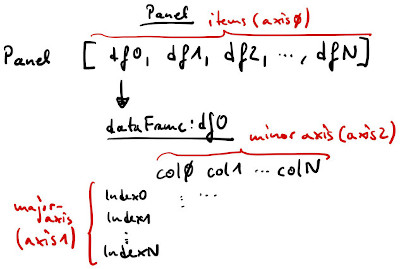 Panel
items (axis0)
Panel [ df0, df1, df2, ..., dfN]
dataFrame: df0
minor axis (axis2)
col0 col1 ... colN
major-axis (axis1)
Index0 : ...
Index1
:
IndexN